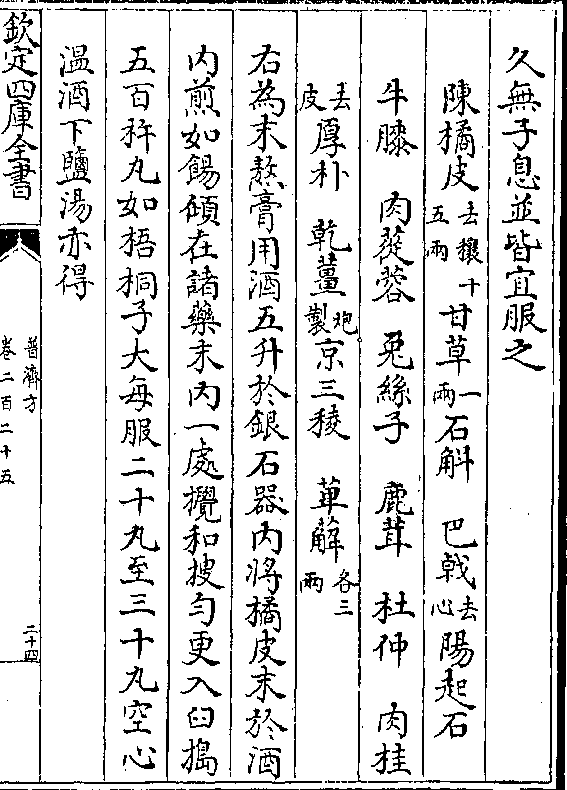 久無子息並皆宜服之
陳橘皮去穰十五兩甘草一兩石斛 巴戟去心陽起石
牛膝 肉蓯蓉 兎絲子 鹿茸 杜仲 肉桂
去皮厚朴 乾薑炮製京三稜 萆薢各三兩
右為末熬膏用酒五升於銀石器内將橘皮末於酒
内煎如餳傾在諸藥末内一處攪和搜勻更入臼搗
五百杵丸如梧桐子大每服二十丸至三十丸空心
溫酒下鹽湯亦得
欽定四庫全書
普濟方
卷二百二十五
二十四